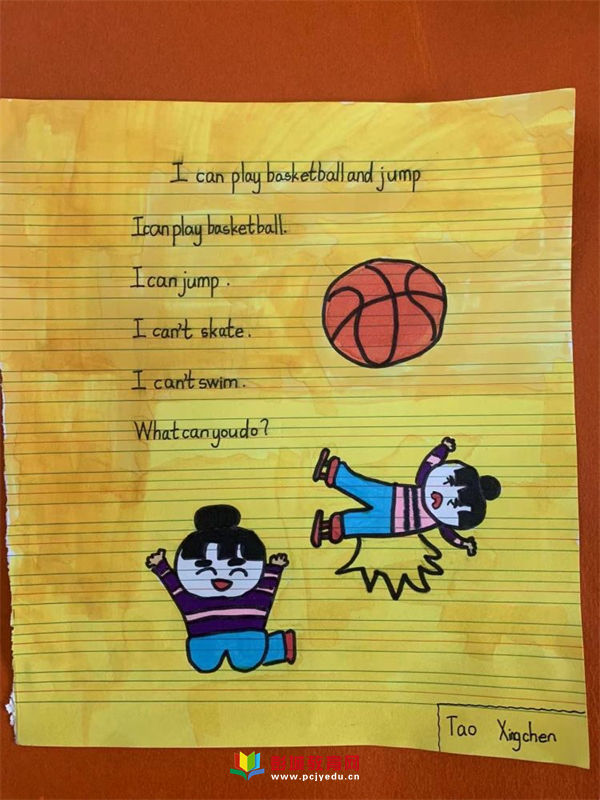 I can play basketball and jump
I can play basketball.
I can jump.
I can't skate.
I can't swim.
What can you do?
Tao Xingchen
www.pcjyedu.cn